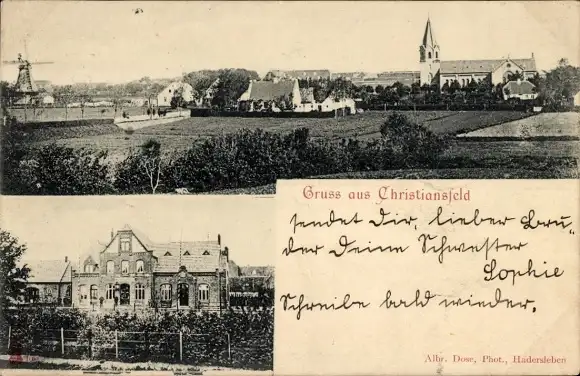 Gruss aus Christiansfeld
sendet Dir, lieber Bru„
der Deine Schwester
Sophie
Schreibe bald wieder.
Albr. Dose, Phot., Hadersleben